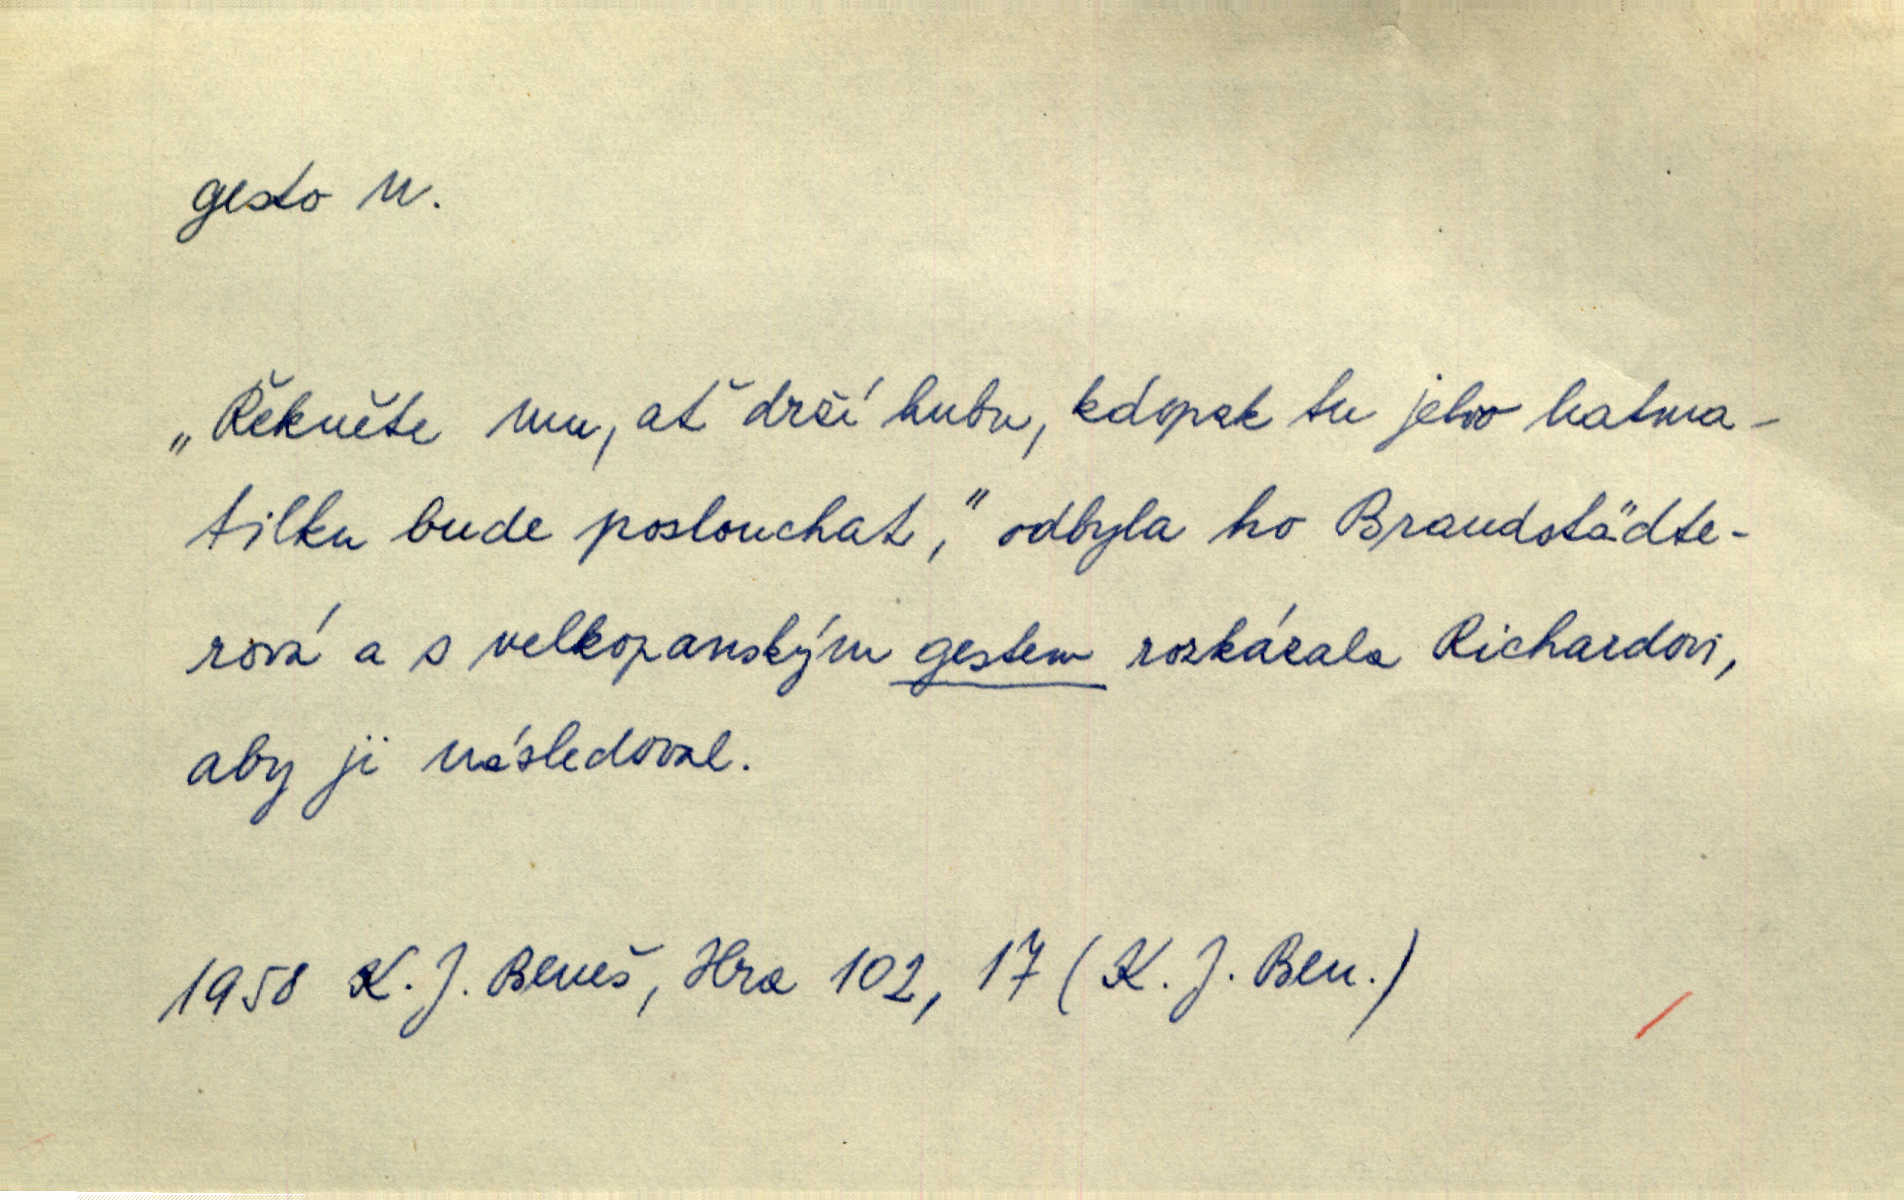 gesto n.
„Řekněte mu, ať drží hubu, kdopak tu jeho hatma-
tilku bude poslouchat," odbyla ho Brandstädte-
rová a s velkopanským gestem rozkázala Richardovi,
aby ji následoval.
1958 K. J. Beneš, Hra 102, 17 (K. J. Ben.)